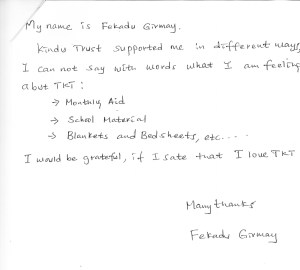 My name is Fekadu Girmay.
Kindu Trust supported me in different ways,
I can not say with words what I am feeling
abut TKT:
→ Monthly Aid
→ School Material
→ Blankets and Bedsheets, etc.....
I would be grateful, if I sate that I love TKT
Many thanks
Fekadu Girmay